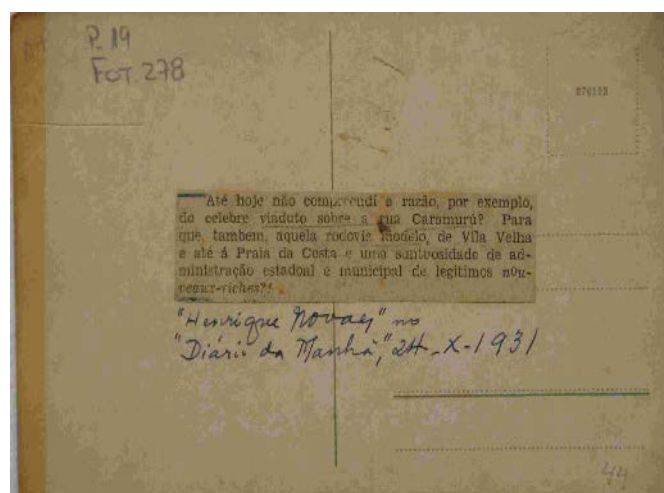 P. 19
FOT. 278
Até hoje não compreendi a razão, por exemplo,
do celebre viaduto sobre a rua Caramurú? Para
que, tambem, aquela rodovia modelo, de Vila Velha
e até á Praia da Costa e uma suntuosidade de ad-
ministração estadoal e municipal de legitimos nou-
veaux-riches?!
"Henrique Novaes" no
"Diário da Manhã", 24-X-1931
44